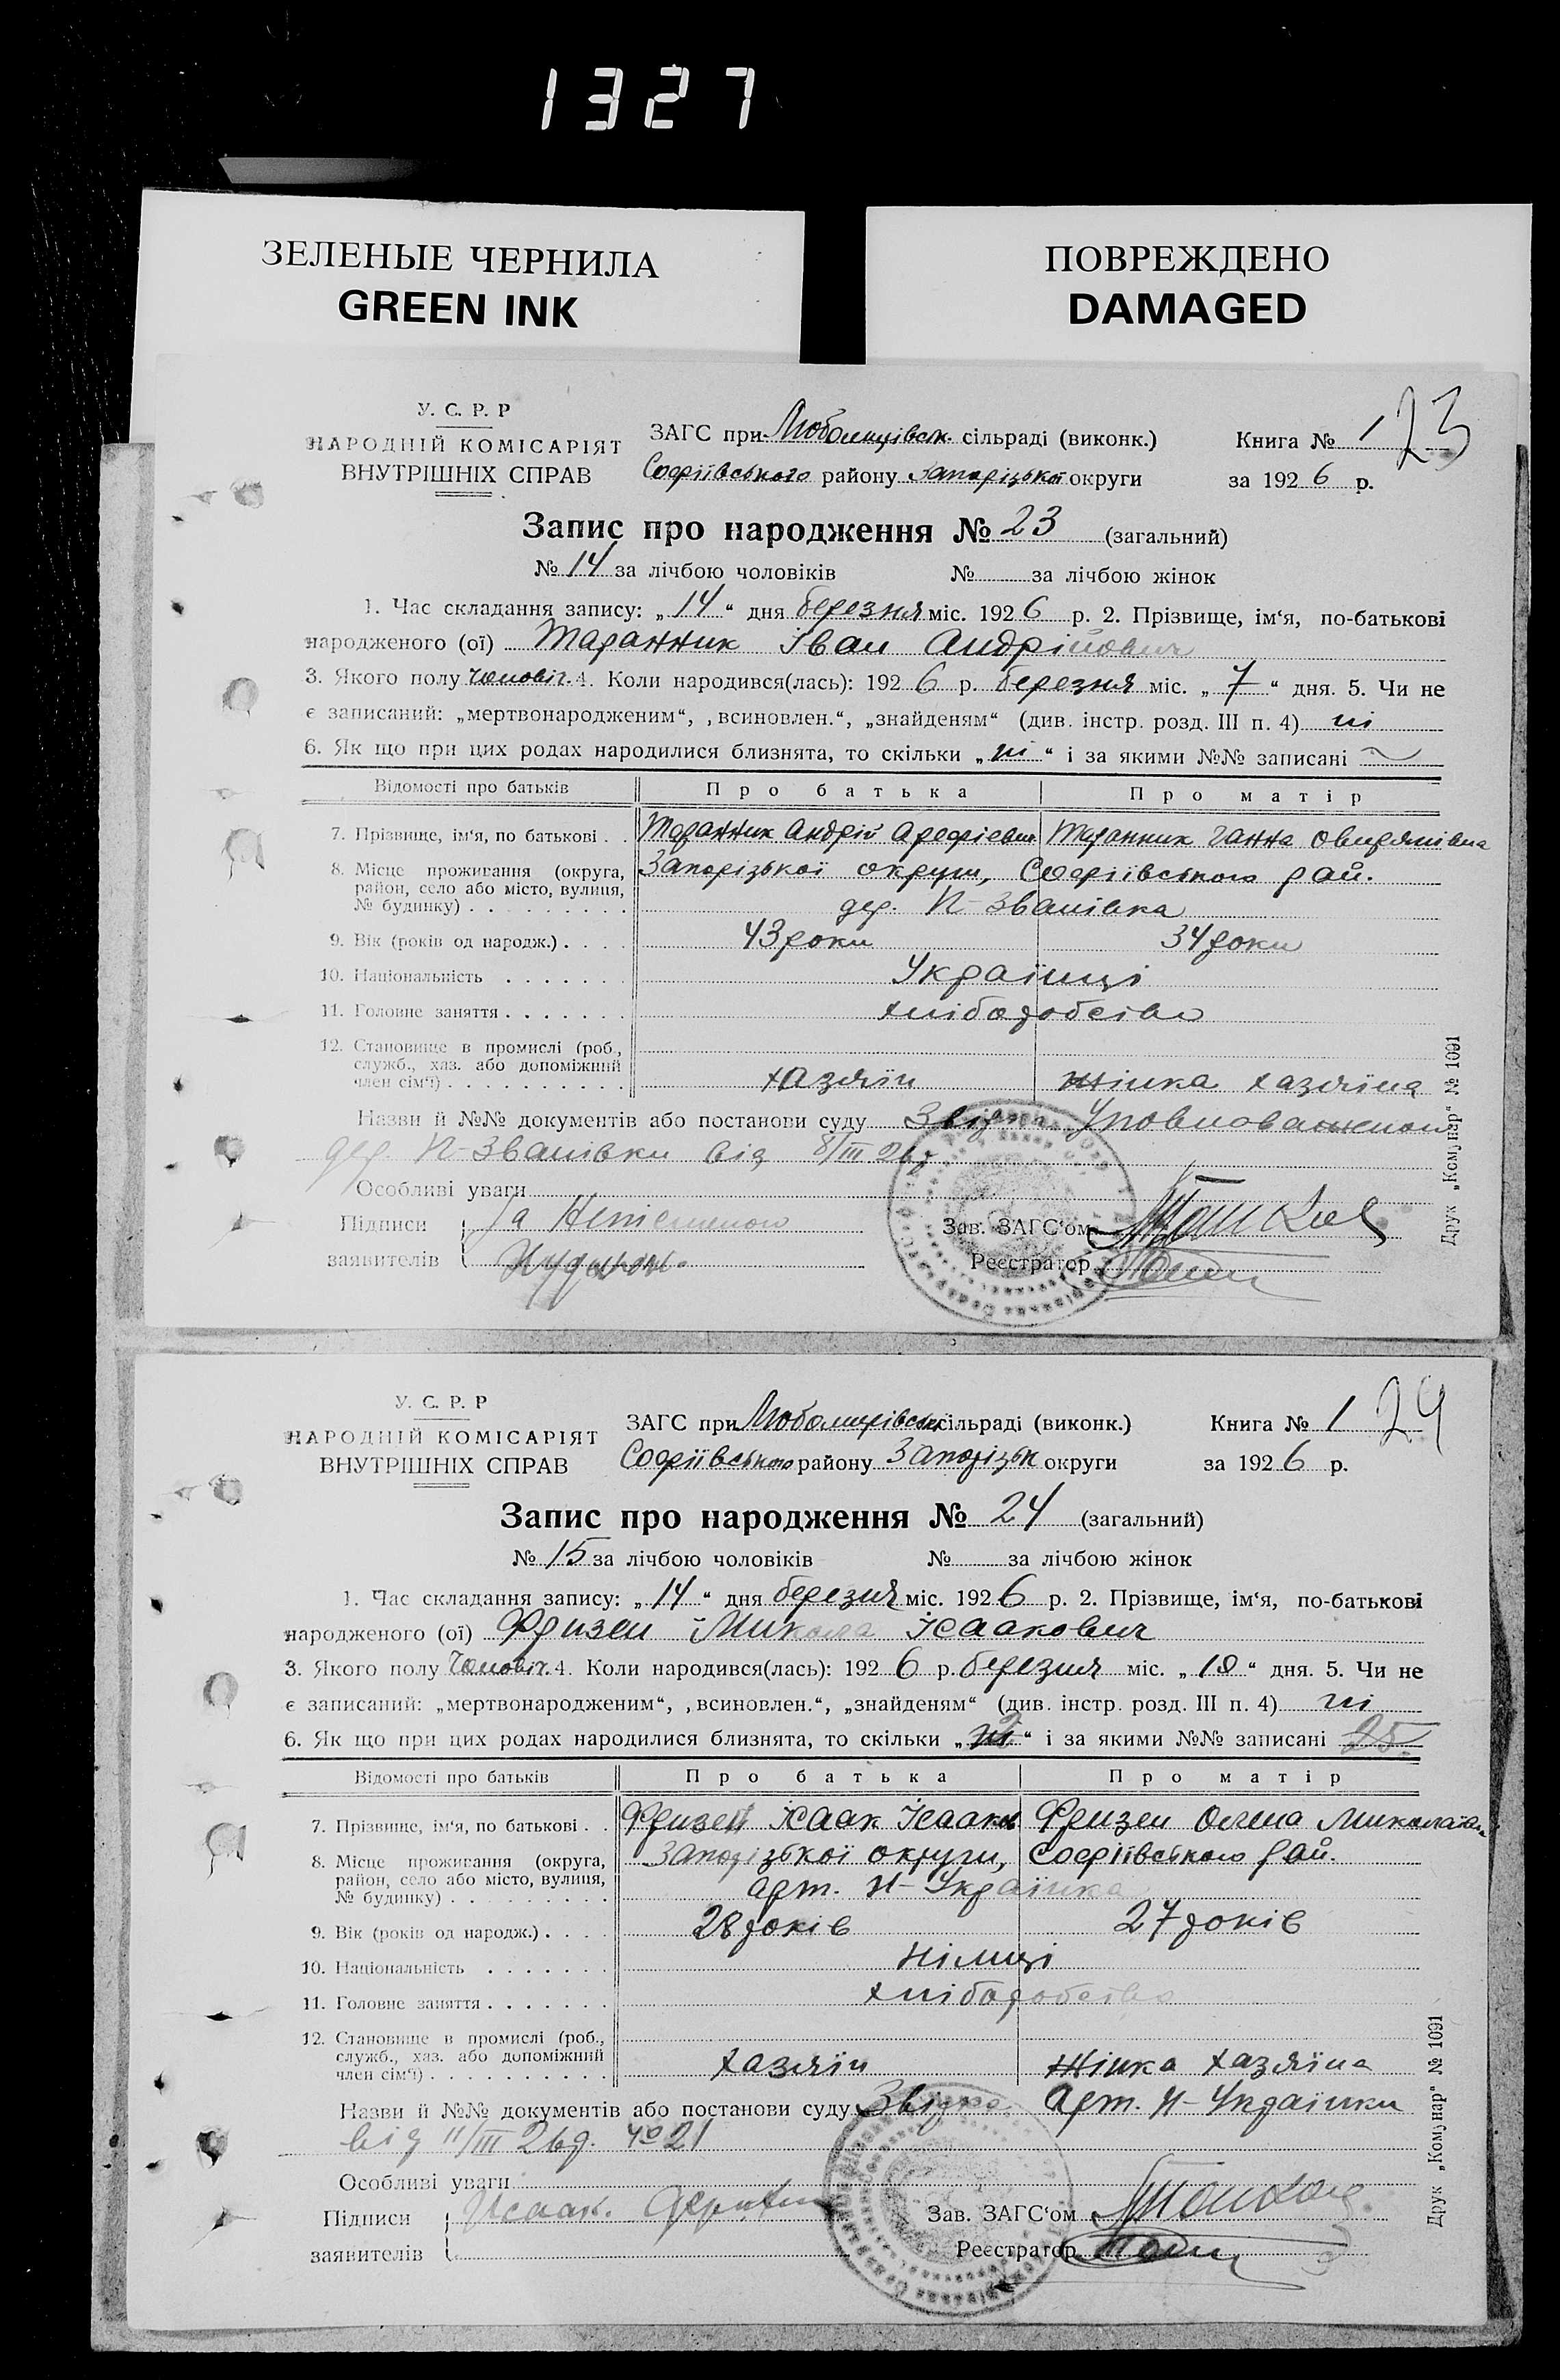 1327
ЗЕЛЕНЫЕ ЧЕРНИЛА
GREEN INK
ПОВРЕЖДЕНО
DAMAGED
У. С. Р. Р
НАРОДНІЙ КОМІСАРІЯТ
ВНУТРІШНІХ СПРАВ
ЗАГС при сільраді (виконк.)
Софіївського району Запорізької округи
Книга № 1 23
за 1926 р.
Запис про народження № 23 (загальний)
№ 14 за лічбою чоловіків № за лічбою жінок
1. Час складання запису: „14“ дня березня міс. 1926 р. 2. Прізвище, ім‘я, по-батькові
народженого (ої) Таранник Іван Андрійович
3. Якого полу чоловіч. 4. Коли народився(лась): 1926 р. березня міс. „7“ дня. 5. Чи не
є записаний: „мертвонародженим“, „всиновлен.“, „знайденям“ (див. інстр. розд. III п. 4) ні
6. Як що при цих родах народилися близнята, то скільки „ні“ і за якими №№ записані ~
Відомості про батьків Про батька Про матір
7. Прізвище, ім‘я, по батькові . . Таранник Андрій Таранник Ганна
8. Місце проживання (округа, Запорізької округи, Софіївського рай.
район, село або місто, вулиця,
№ будинку) . . . . . . . . . дер. П-Званівка
9. Вік (років од народж.) . . . . 43 роки 34 роки
10. Національність . . . . . . . Українці
11. Головне заняття . . . . . . . хліборобство
12. Становище в промислі (роб.,
служб., хаз. або допоміжний
член сім‘ї) . . . . . . . . . . хазяїн жінка хазяїна
Назви й №№ документів або постанови суду Звідка
дер. П-Званівки від 8/III 26р
Особливі уваги
Підписи За
заявителів
Зав. ЗАГС‘ом
Реєстратор
Друк „Комунар“ № 1091
У. С. Р. Р
НАРОДНІЙ КОМІСАРІЯТ
ВНУТРІШНІХ СПРАВ
ЗАГС при сільраді (виконк.)
Софіївського району Запорізьк округи
Книга № 1 24
за 1926 р.
Запис про народження № 24 (загальний)
№ 15 за лічбою чоловіків № за лічбою жінок
1. Час складання запису: „14“ дня березня міс. 1926 р. 2. Прізвище, ім‘я, по-батькові
народженого (ої) Фризен Микола Ісаакович
3. Якого полу чоловіч. 4. Коли народився(лась): 1926 р. березня міс. „10“ дня. 5. Чи не
є записаний: „мертвонародженим“, „всиновлен.“, „знайденям“ (див. інстр. розд. III п. 4) ні
6. Як що при цих родах народилися близнята, то скільки „2“ і за якими №№ записані 25.
Відомості про батьків Про батька Про матір
7. Прізвище, ім‘я, по батькові . . Фризен Ісаак Ісааков Фризен Олена
8. Місце проживання (округа, Запорізької округи, Софіївського рай.
район, село або місто, вулиця,
№ будинку) . . . . . . . . . арт. Н-Українка
9. Вік (років од народж.) . . . . 28 років 27 років
10. Національність . . . . . . . німці
11. Головне заняття . . . . . . . хліборобство
12. Становище в промислі (роб.,
служб., хаз. або допоміжний
член сім‘ї) . . . . . . . . . . хазяїн жінка хазяїна
Назви й №№ документів або постанови суду Звідка арт. Н-Українки
від 11/III 26р. № 21
Особливі уваги
Підписи Исаак.
заявителів
Зав. ЗАГС‘ом
Реєстратор
Друк „Комунар“ № 1091